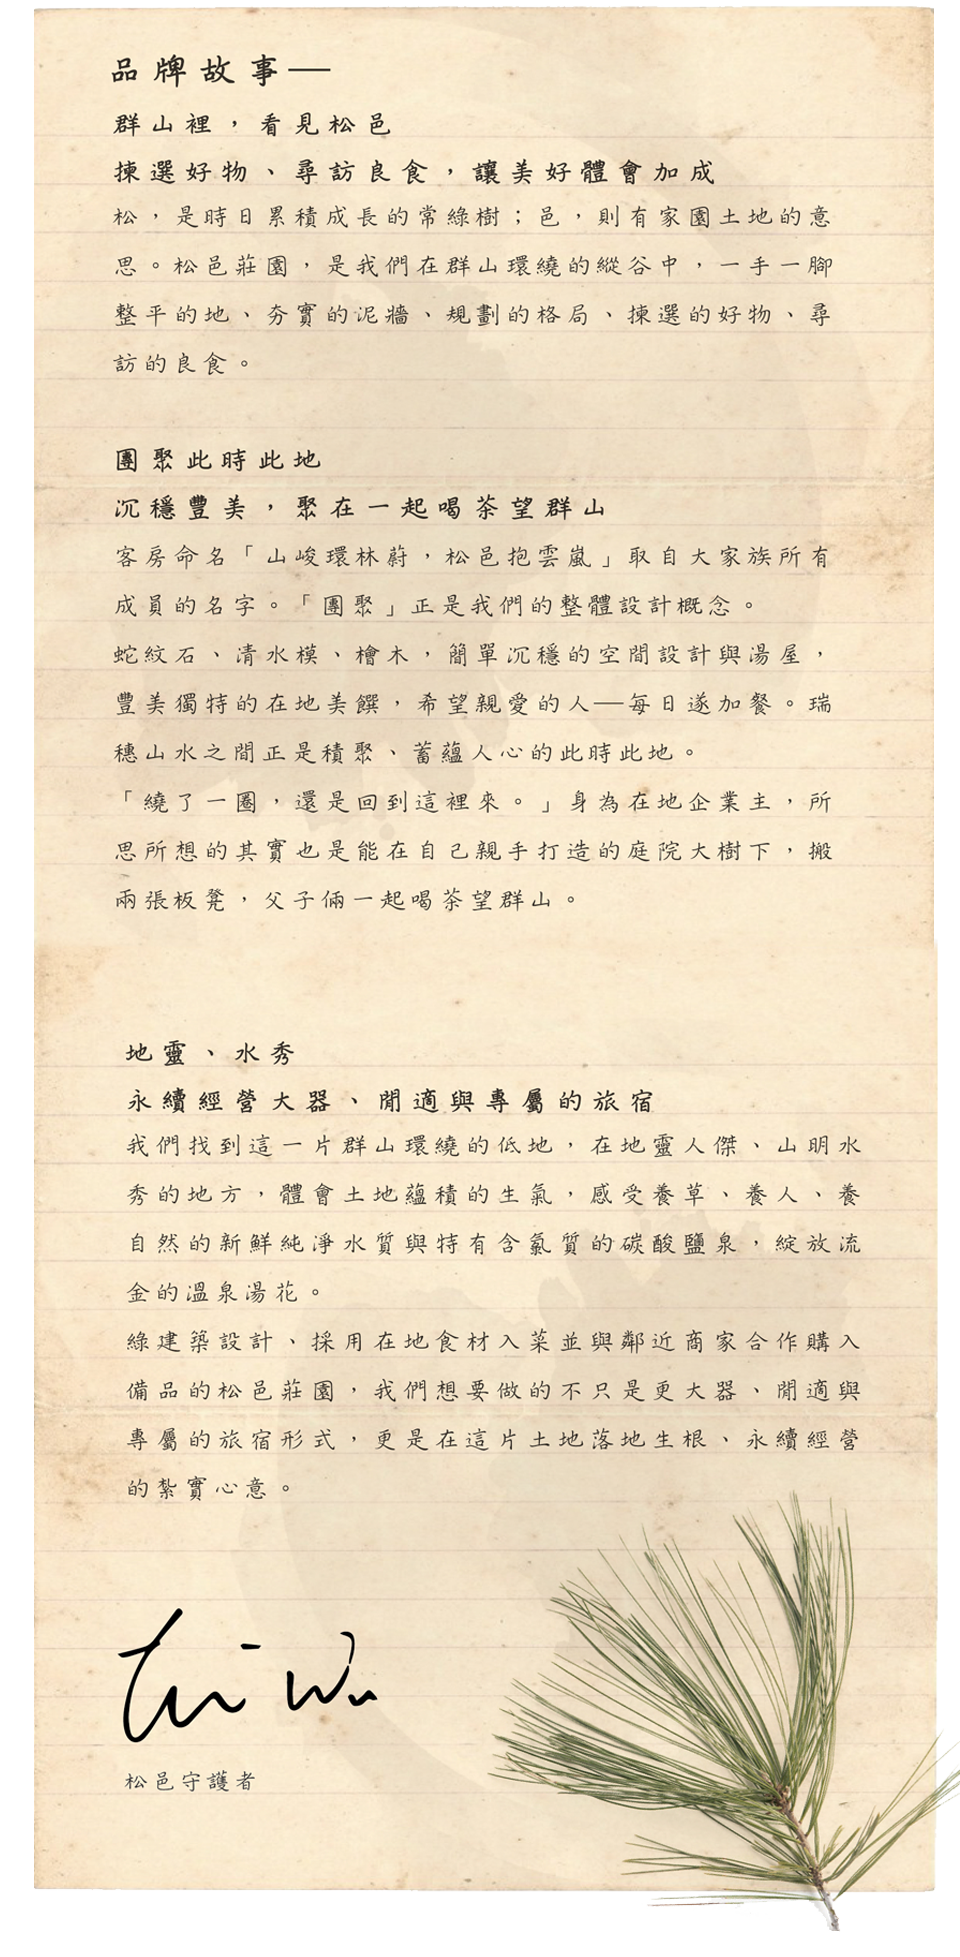 品牌故事──
群山裡，看見松邑
揀選好物、尋訪良食，讓美好體會加成
松，是時日累積成長的常綠樹；邑，則有家園土地的意
思。松邑莊園，是我們在群山環繞的縱谷中，一手一腳
整平的地、夯實的泥牆、規劃的格局、揀選的好物、尋
訪的良食。
團聚此時此地
沉穩豐美，聚在一起喝茶望群山
客房命名「山峻環林蔚，松邑抱雲嵐」取自大家族所有
成員的名字。「團聚」正是我們的整體設計概念。
蛇紋石、清水模、檜木，簡單沉穩的空間設計與湯屋，
豐美獨特的在地美饌，希望親愛的人──每日遂加餐。瑞
穗山水之間正是積聚、蓄蘊人心的此時此地。
「繞了一圈，還是回到這裡來。」身為在地企業主，所
思所想的其實也是能在自己親手打造的庭院大樹下，搬
兩張板凳，父子倆一起喝茶望群山。
地靈、水秀
永續經營大器、閒適與專屬的旅宿
我們找到這一片群山環繞的低地，在地靈人傑、山明水
秀的地方，體會土地蘊積的生氣，感受養草、養人、養
自然的新鮮純淨水質與特有含氯質的碳酸鹽泉，綻放流
金的溫泉湯花。
綠建築設計、採用在地食材入菜並與鄰近商家合作購入
備品的松邑莊園，我們想要做的不只是更大器、閒適與
專屬的旅宿形式，更是在這片土地落地生根、永續經營
的紮實心意。
松邑守護者